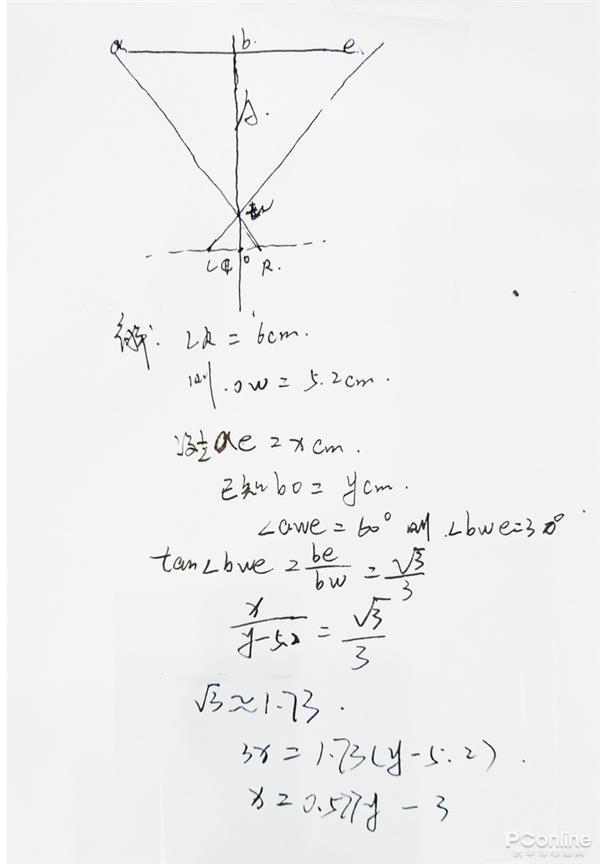 a b. e
y.
w
L O R.
解: LR = 6cm.
则.ow = 5.2cm.
设ae = xcm.
已知bo = ycm.
∠awe = 60° 则.∠bwe=30°
tan∠bwe = be/bw = √3/3
x/y-5.2 = √3/3
√3≈1.73.
3x = 1.73(y-5.2).
x = 0.577y - 3
PConline
太平洋电脑网